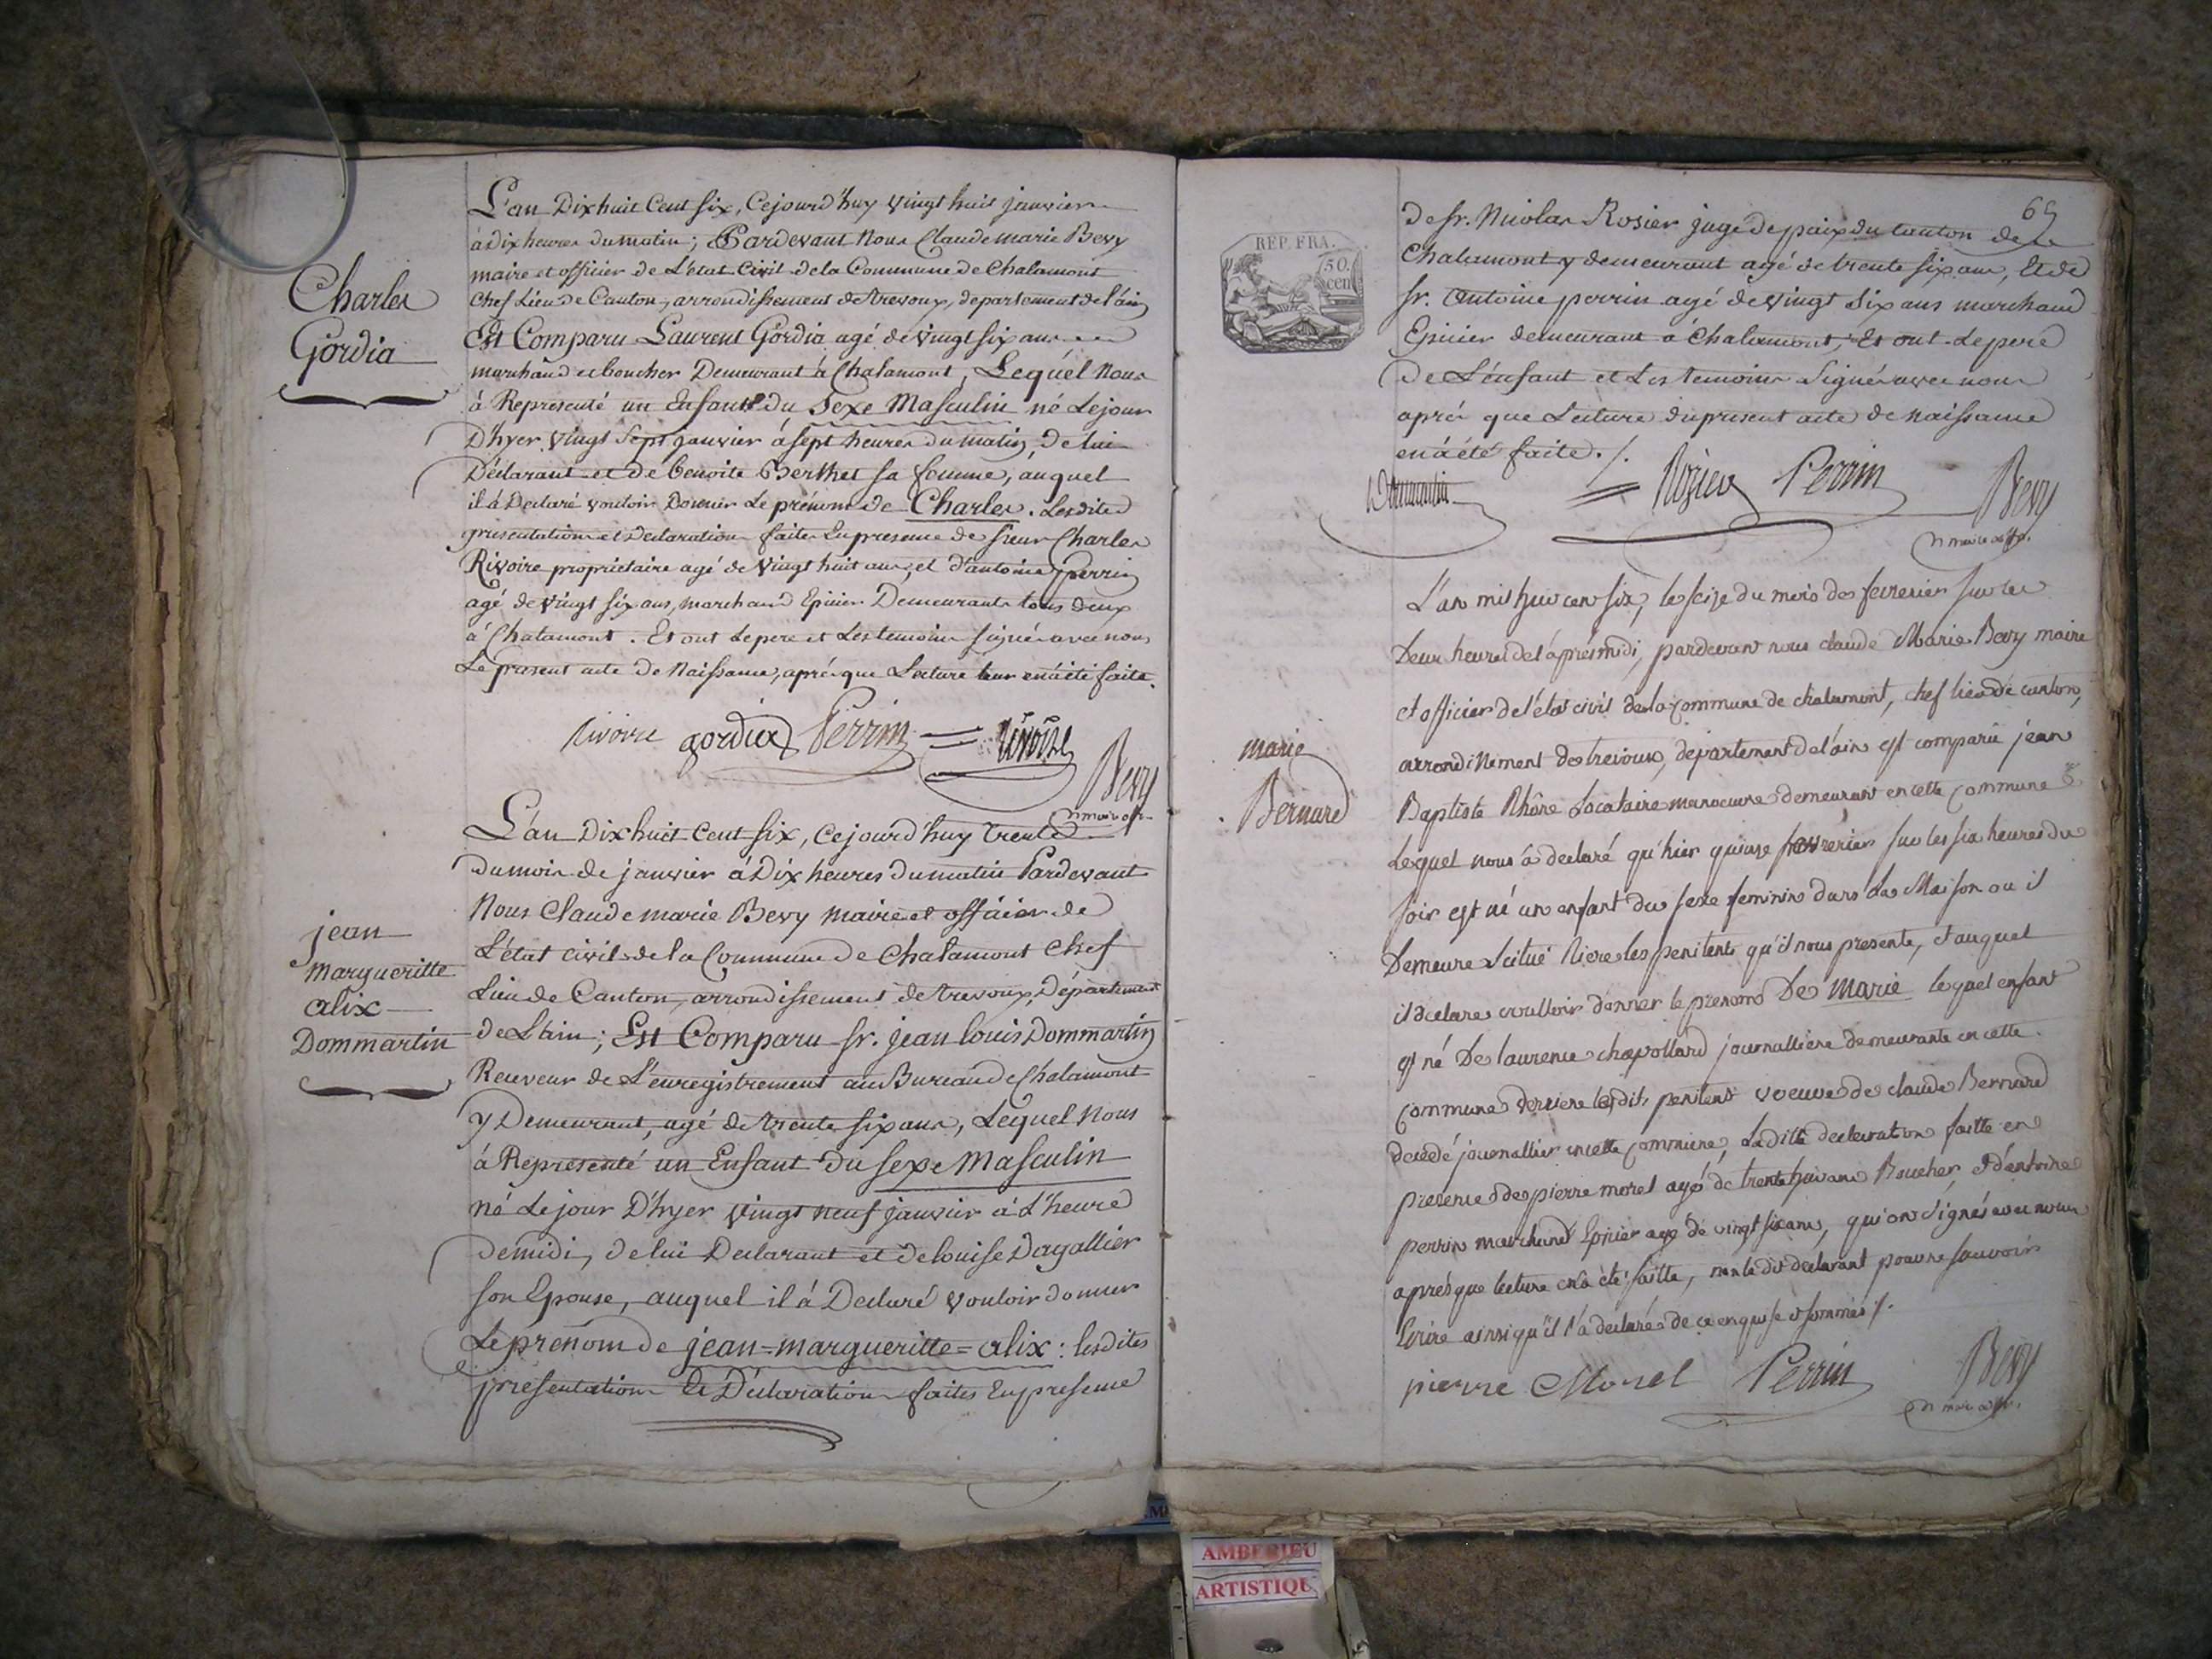 Charles
Gordia
L'an Dix huit Cent Six, Cejourd'huy Vingt huit janvier
à Dix heures du matin; Pardevant Nous Claude marie Bevy
maire et officier de L'état Civil de la Commune de Chalamont
Chef Lieu de Canton, arrondissement de trevoux, departement de l'ain
Est Comparu Laurent Gordia agé de Vingt six ans
marchand boucher Demeurant à Chalamont, Lequel Nous
à Représenté un Enfant du Sexe Masculin né Le jour
D'hyer Vingt Sept janvier à sept heures du matin, de lui
Déclarant et de benoite Berthet sa femme, auquel
il à Declaré vouloir Donner Le prénom de Charles. Lesdites
presentation et Declaration faites En presence de sieur Charles
Rivoire proprietaire agé de Vingt huit ans, et d'antoine Perrin
agé de Vingt six ans, marchand Epicier Demeurants tous deux
à Chalamont. Et ont Le pere et Les temoins signé avec nous
Le present acte de Naissance, après que Lecture leur en à été faite.
rivoire gordia Perrin Bevy
jean
margueritte
alix
Dommartin
L'an Dix huit Cent Six, Cejourd'huy trente
du mois de janvier à Dix heures du matin Pardevant
Nous Claude marie Bevy maire et officier de
L'état civil de la Commune de Chalamont Chef
Lieu de Canton, arrondissement de trevoux, Département
de L'ain; Est Comparu sr. jean louis Dommartin
Receveur de L'enregistrement au Bureau de Chalamont
y Demeurant, agé de trente six ans, Lequel Nous
à Représenté un Enfant du Sexe Masculin
né Le jour D'hyer Vingt neuf janvier à L'heure
de midi, de lui Declarant et de louise Dagallier
son Epouse, auquel il à Declaré vouloir donner
Le prenom de jean=margueritte=alix: lesdites
presentation Et Déclaration faites En presence
65
REP. FRA.
50.
cen
de sr. Nicolas Rosier juge de paix du canton de
Chalamont y demeurant agé de trente six ans, Et de
sr. antoine perrin agé de vingt six ans marchand
Epicier demeurant à Chalamont, Et ont Le pere
de L'enfant et Les temoins Signé avec nous
après que Lecture du present acte de naissance
en à été faite./.
Dommartin Rosier Perrin Bevy
marie
Bernard
L'an mil huit cent six, le seize du mois de fevrier sur les
Deux heures de l'après midi, pardevant nous claude Marie Bevy maire
et officier de l'état civil de la commune de chalamont, chef lieu de canton,
arrondissement de trevoux, département de l'ain est comparü jean
Baptiste Rhône Locataire manoeuvre demeurant en cette commune
Lequel nous à declaré qu'hier quinze fevrier sur les six heures du
soir est né un enfant du sexe feminin dans La Maison ou il
Demeure Scitué Riere les penitents qu'il nous presente, et auquel
il declare voulloir donner le prenom De Marie lequel enfant
est né De laurence chapollard journalliere demeurante en cette
commune derriere lesdits penitents veuve de claude Bernard
decedé journallier en cette commune, Laditte declaration faitte en
presence de pierre morel agé de trente huit ans Boucher, et d'antoine
perrin marchand Epicier agé de vingt six ans, qui ont Signés avec nous
après que lecture en à été faitte, non le dit declarant pour ne sçavoir
Ecrire ainsi qu'il l'a declaré de ce enquise et sommés /.
pierre Morel Perrin Bevy
AMBERIEU
ARTISTIQUE